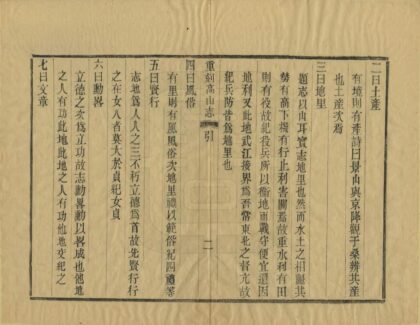 二曰土產
有壤則有產詩曰景山與京降觀于桑辨其產
也土產次焉
三曰地里
題志以山耳實志地里也然而水土之相錯其
勢有高下機有行止利害關焉故重水利有田
則有役故紀役兵所以衛地而戰守便宜還因
地利又此地武江接界爲吾常東北之督亢故
紀兵防皆爲地里也
重刻高山志 引 二
四曰風俗
有里則有風風俗次地里禮以範俗紀四禮畧
五曰賢行
志地爲人人之三不朽立德爲首故先賢行行
之在女人者莫大於貞紀女貞
六曰勳畧
立德之次爲立功故志勳畧勳以畧成也他地
之人有功此地此地之人有功他地交紀之
七曰文章